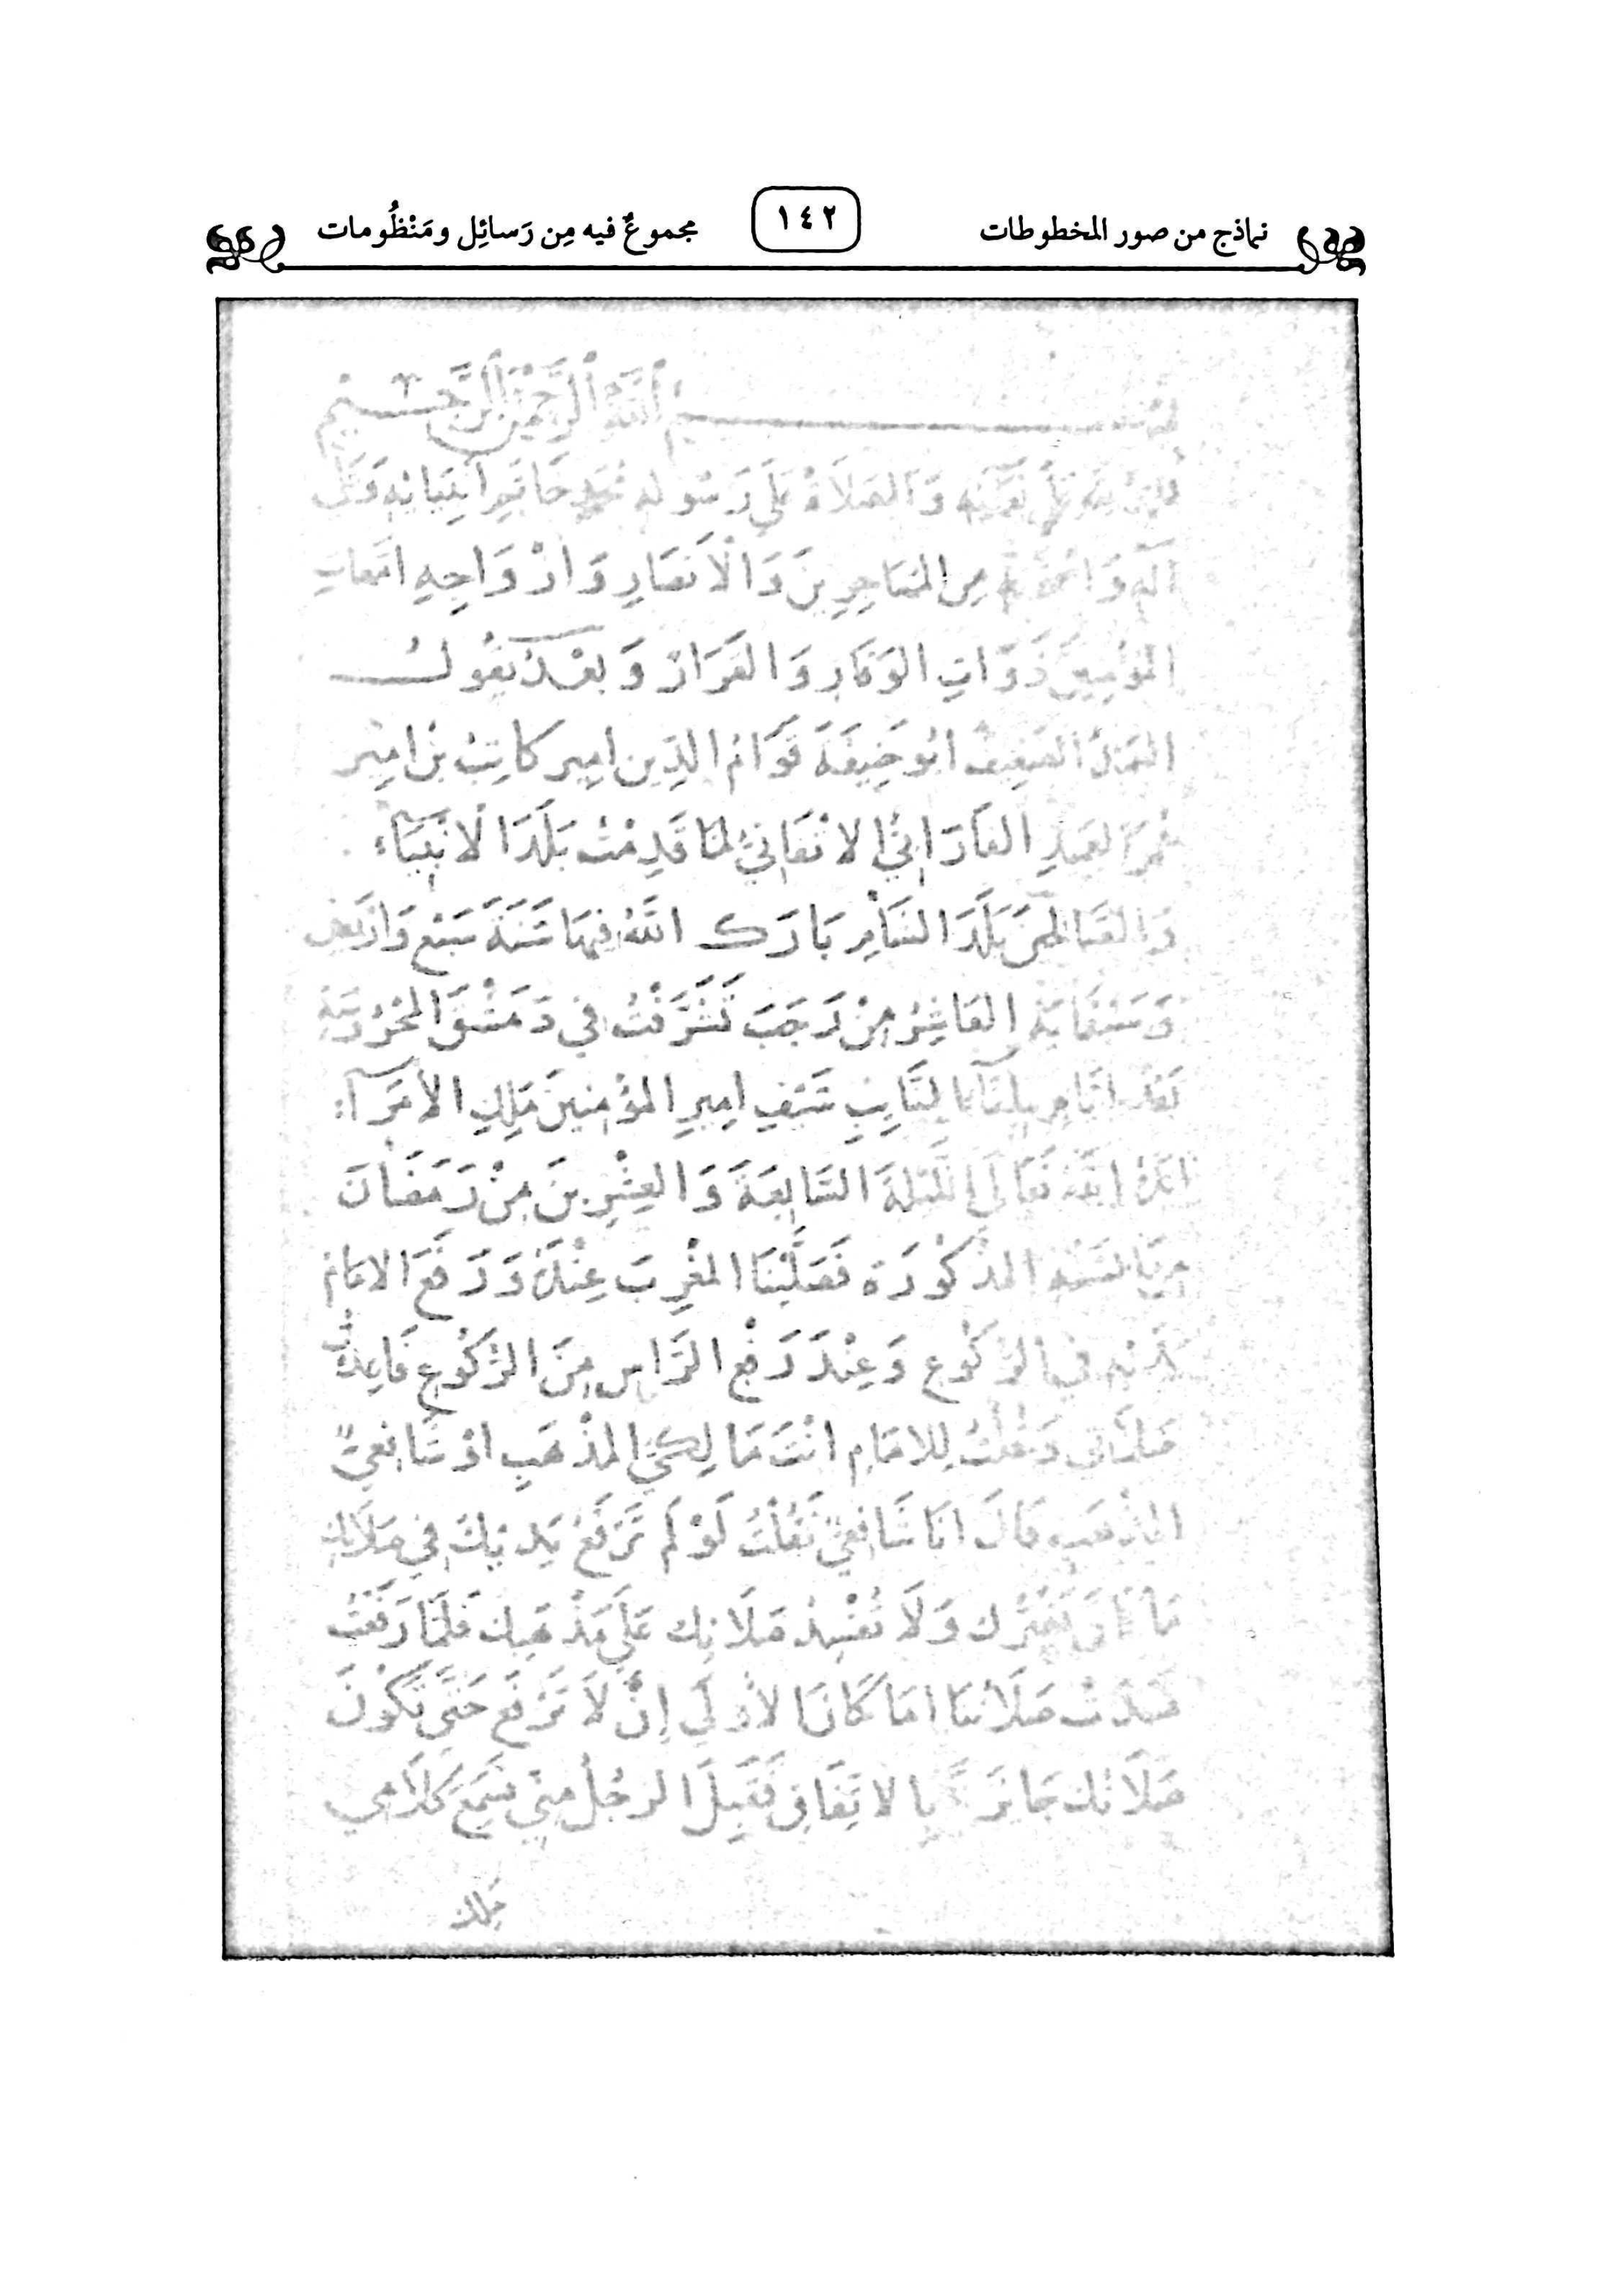 نماذج من صور المخطوطات
١٤٢
مجموعٌ فيه مِن رَسائِل ومَنْظُومات
بسم الله الرحمن الرحيم
وَالصَلَاةُ عَلَى رَسُولِهِ مُحمدٍ خَاتَمِ انبِيَائِهِ وَعَلَى
آلِهِ مِن المهَاجِرِينَ وَالْاَنصَارِ وَازْوَاجِهِ امّهاتِ
المؤمنِينَ ذَوَاتِ الوَقَارِ وَالقَرَارْ وَبَعْدُ يَقُولُ
العَبْدُ الضعِيفُ ابُو حَنِيفَةَ قَوَامُ الدِين امِير كَاتِبْ بنُ امِير
عُمَرَ العَمِيدِ الفَارَابيُّ الاتْقَانيُّ لمّا قَدِمْتُ بَلْدَ الْانْبِيَاءِ
وَالصَالحِينَ بَلَدَ الشَامِ بَارَكَ اللهُ فِيهَا سَنَةَ سَبْعٍ وَارْبَعِينَ
وَسَبْعمَايَةٍ العَاشِرُ مِنْ رَجَبَ تَشَرَّفْتُ في دَمَشْقَ المحرُوسَةِ
بَعْدَ ايّامٍ بِلِقَاءِ النَايِبِ سَيْفِ امِيرِ المؤمِنينَ مَلِكِ الأمَرَآءِ
اللهُ تَعَالَى اللَيْلَةَ السَابِعَةَ وَالعِشْرِينَ مِنْ رَمَضَانَ
السَنَةِ المَذْكُورَةِ فَصَلَّيْنَا المَغْرِبَ عِنْدَهُ وَرَفَعَ الامَامُ
يَدَيْهِ في الرُكُوعِ وَعِنْدَ رَفْعِ الرَاسِ مِنَ الرُكُوعِ فَاعَدْتُ
صَلَاتي وَقُلْتُ لِلامَامِ انْتَ مَالِكيُّ المَذْهَبِ اوْ شَافِعيُّ
المَذْهَبِ قَالَ انَا شَافِعيٌّ فَقُلْتُ لَوْ لَمْ تَرْفَعْ يَدَيْكَ في صَلَاتِكَ
وَلَا تُفْسِدُ صَلَاتَكَ عَلَى مَذْهَبِكَ فَلَمَّا رَفَعْتَ
فَسَدَتْ صَلَاتُنَا امَا كَانَ الاوْلَى انْ لَا تَرْفَعَ حَتَّى تَكُونَ
صَلَاتُكَ جَائزَةً بالاتِفَاقِ فَقَبِلَ الرجُلُ مِنّي كَلَامِي